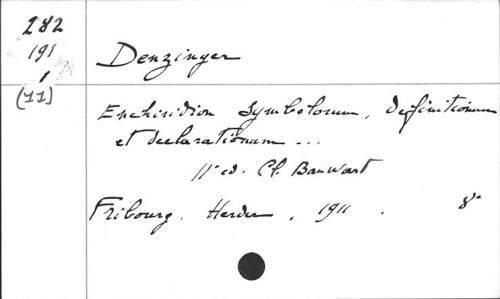 282
191
1
(11)
Denzinger
Enchiridion symbolorum, definitionum
et declarationum ...
11ᵃ ed. Cl. Bannwart
Fribourg. Herder, 1911. 8°